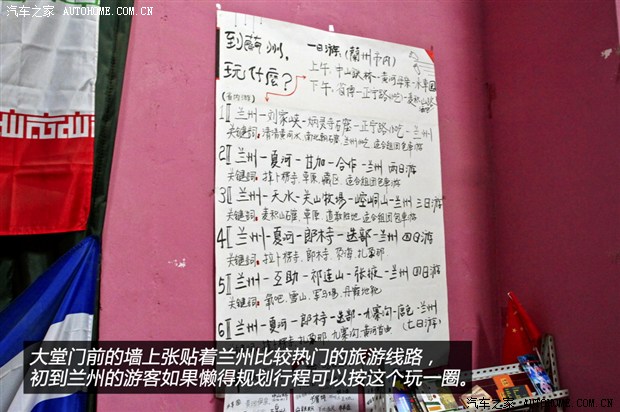 汽车之家 AUTOHOME.COM.CN
到蘭州,
玩什麼?
一日游:(蘭州市内)
上午:中山铁桥-黄河母亲-水車园
下午:省博-正宁路小吃-
(省内游)
1 兰州-刘家峡-炳灵寺石窟-正宁路小吃-兰州
关键词:清清黄河水、石窟、兰州小吃、适合组团包車游
2 兰州-夏河-甘加-合作-兰州 两日游
关键词:拉卜楞寺、草原、藏区、适合组团包車游
3 兰州-天水-关山牧場-崆峒山-兰州 三日游
关键词:麦积山石窟、草原、道教胜地、适合组团包車游
4 兰州-夏河-郎木寺-迭部-兰州 四日游
关键词:拉卜楞寺、郎木寺、扎尕那
5 兰州-互助-祁连山-张掖-兰州 四日游
关键词:氧吧、雪山、军马場、丹霞地貌
6 兰州-夏河-郎木寺-迭部-九寨沟-兰州
郎木寺、扎尕那、九寨沟、黄河首曲 (七日游)
大堂门前的墙上张贴着兰州比较热门的旅游线路，
初到兰州的游客如果懒得规划行程可以按这个玩一圈。
汽车之家 AUTOHOME.COM.CN